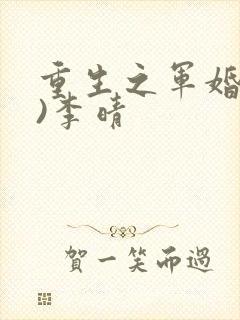 重生之军婚
)李晴
賀一笑而過